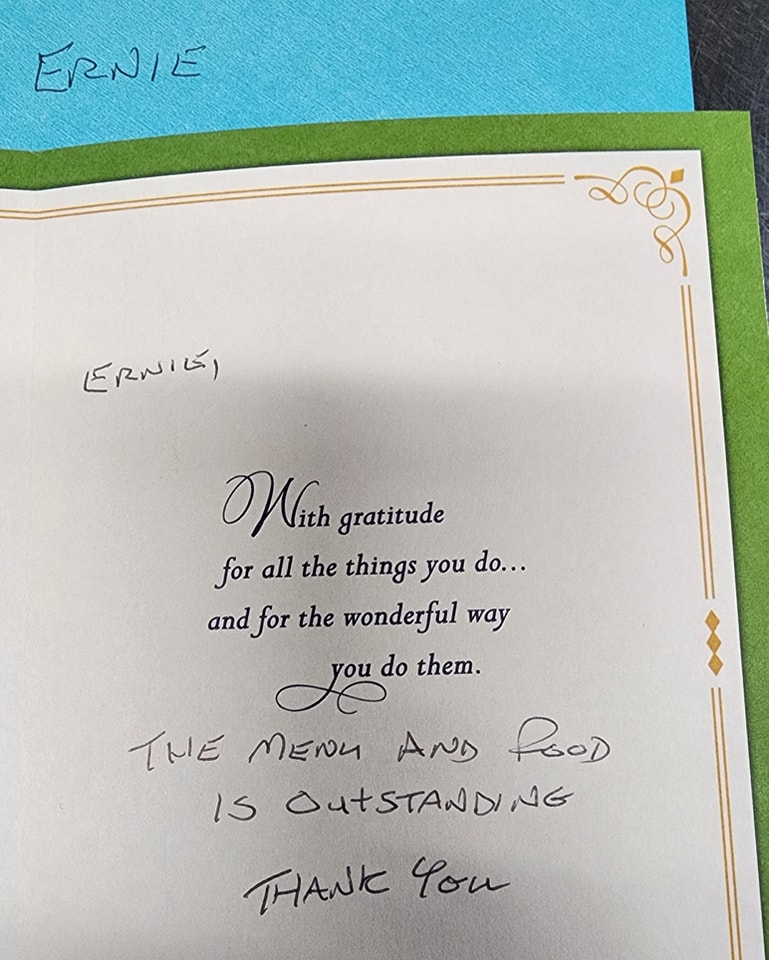 ERNIE
ERNIE,
With gratitude
for all the things you do...
and for the wonderful way
you do them.
THE MENU AND FOOD
IS OUtSTANDING
THANK YOU